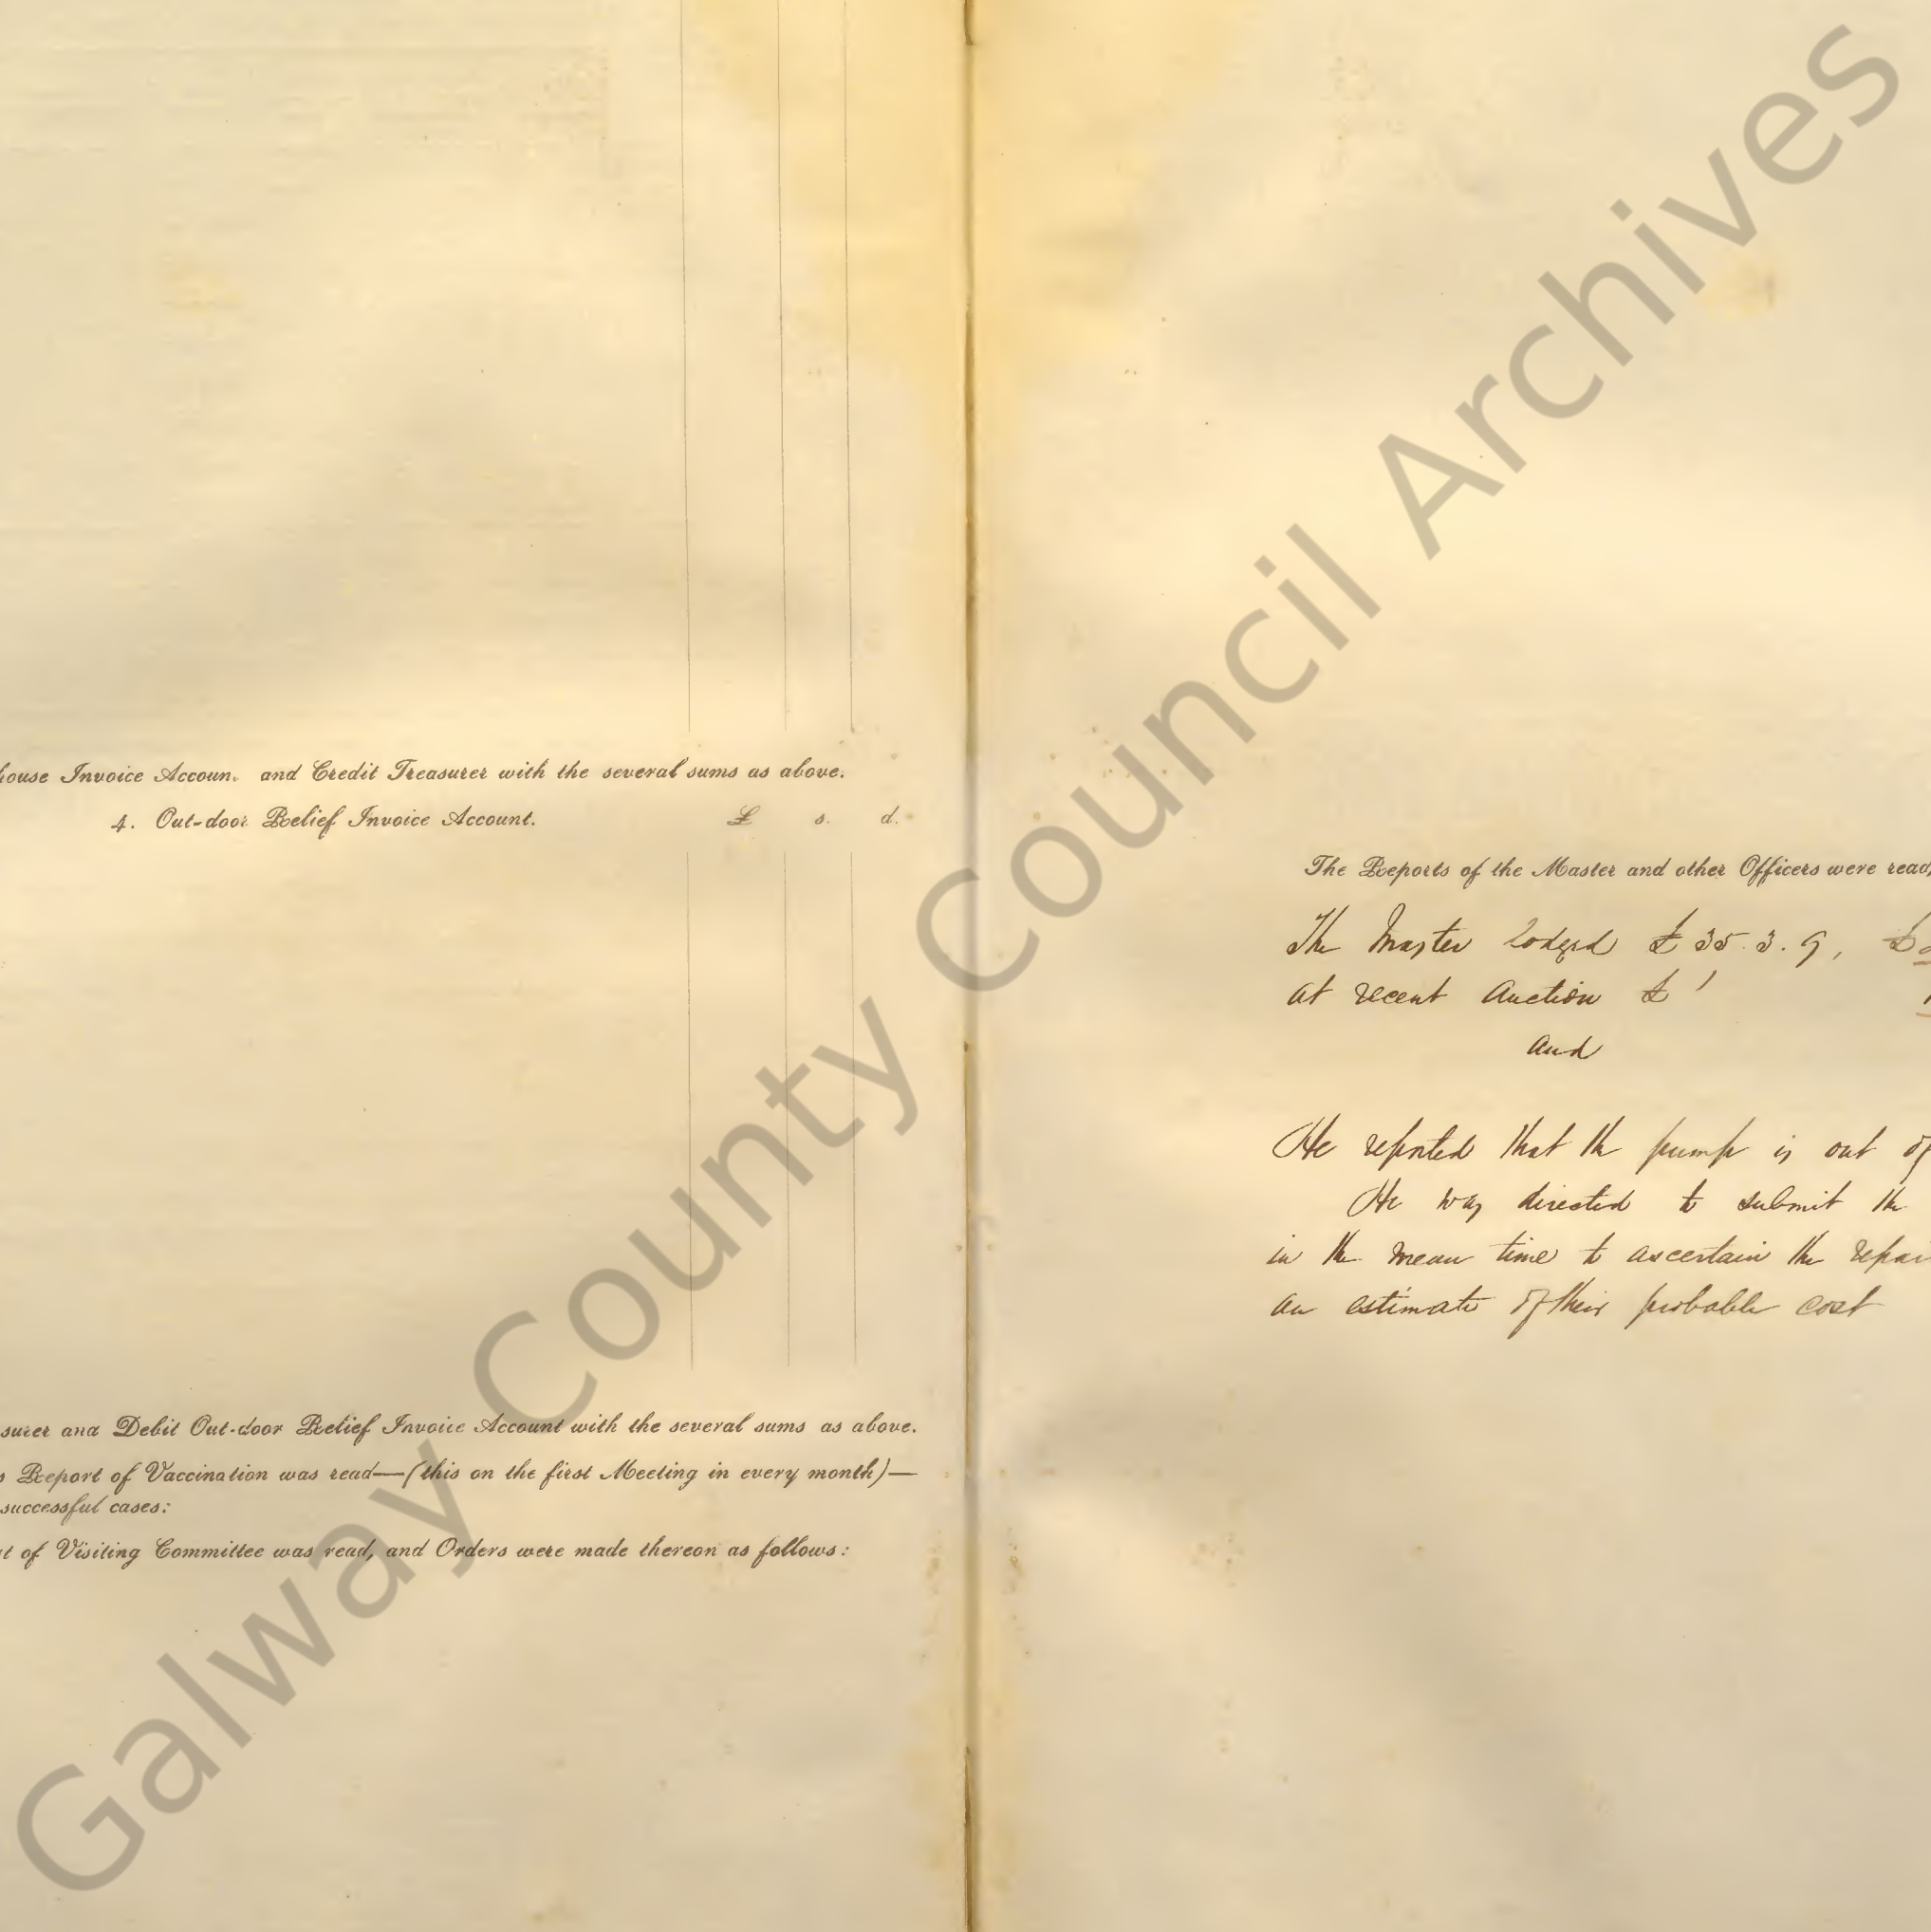 house Invoice Accoun. and Credit Treasurer with the several sums as above.
4. Out-door Relief Invoice Account. £ s. d.
surer and Debit Out-door Relief Invoice Account with the several sums as above.
s Report of Vaccination was read—(this on the first Meeting in every month)—
successful cases:
t of Visiting Committee was read, and Orders were made thereon as follows:
The Reports of the Master and other Officers were read,
The Master lodged £35.3.9, £
at recent Auction £1
and
He reported that the pump is out of
He was directed to submit the
in the mean time to ascertain the repai
an estimate of their probable cost
Galway County Council Archives